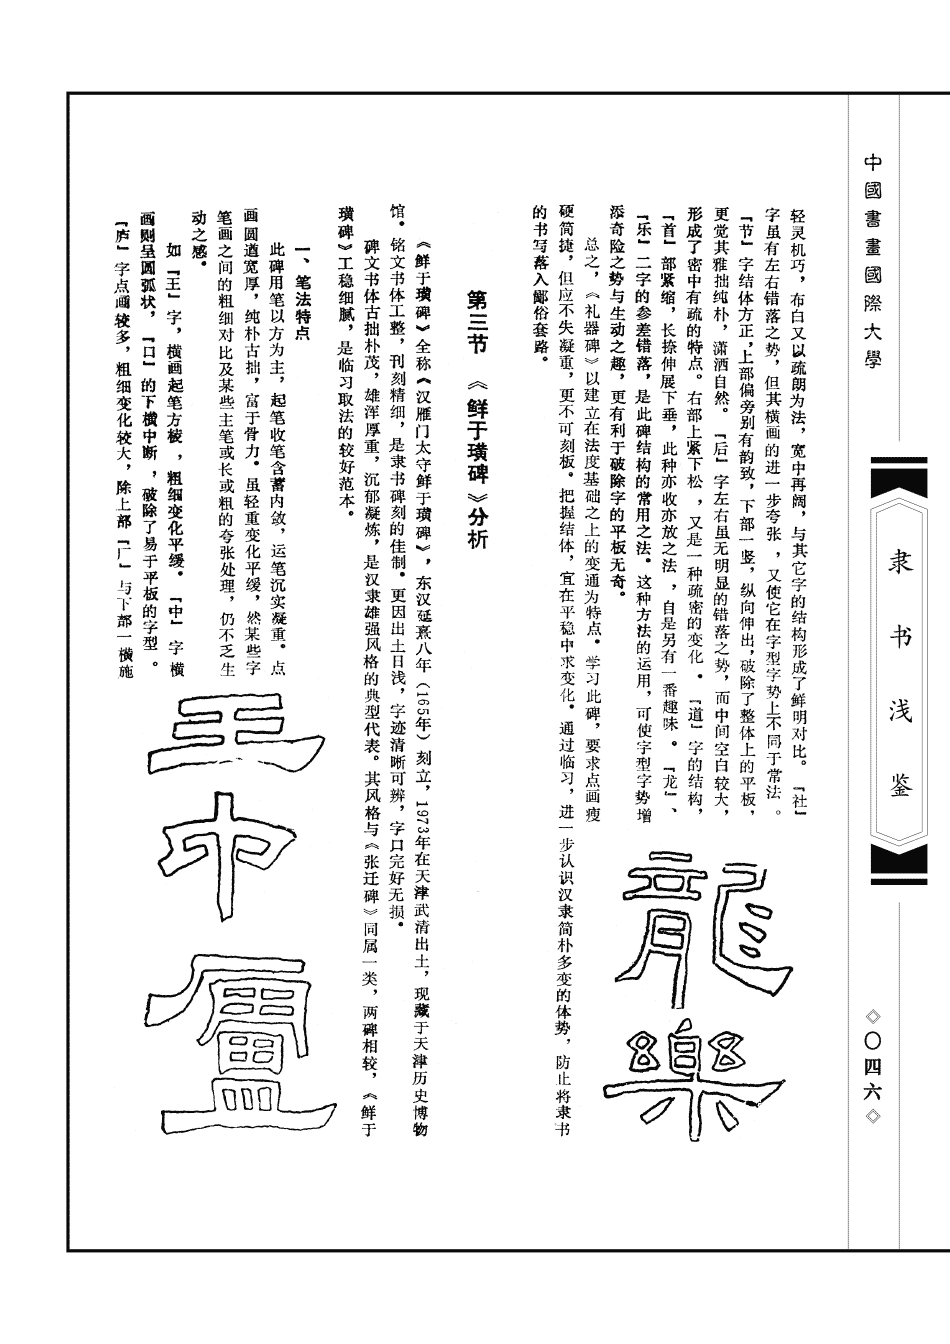 中國書畫國際大學
隶书浅鉴
◇〇四六◇
轻灵机巧，布白又以疏朗为法，宽中再阔，与其它字的结构形成了鲜明对比。『社』
字虽有左右错落之势，但其横画的进一步夸张，又使它在字型字势上不同于常法。
『节』字结体方正，上部偏旁别有韵致，下部一竖，纵向伸出，破除了整体上的平板，
更觉其雅拙纯朴，潇洒自然。『后』字左右虽无明显的错落之势，而中间空白较大，
形成了密中有疏的特点。右部上紧下松，又是一种疏密的变化。『道』字的结构，
『首』部紧缩，长捺伸展下垂，此种亦收亦放之法，自是另有一番趣味。『龙』、
『乐』二字的参差错落，是此碑结构的常用之法。这种方法的运用，可使字型字势增
添奇险之势与生动之趣，更有利于破除字的平板无奇。
总之，《礼器碑》以建立在法度基础之上的变通为特点。学习此碑，要求点画瘦
硬简捷，但应不失凝重，更不可刻板。把握结体，宜在平稳中求变化。通过临习，进一步认识汉隶简朴多变的体势，防止将隶书
的书写落入鄙俗套路。
龍樂
第三节 《鲜于璜碑》分析
《鲜于璜碑》全称《汉雁门太守鲜于璜碑》，东汉延熹八年（165年）刻立，1973年在天津武清出土，现藏于天津历史博物
馆。铭文书体工整，刊刻精细，是隶书碑刻的佳制。更因出土日浅，字迹清晰可辨，字口完好无损。
碑文书体古拙朴茂，雄浑厚重，沉郁凝炼，是汉隶雄强风格的典型代表。其风格与《张迁碑》同属一类，两碑相较，《鲜于
璜碑》工稳细腻，是临习取法的较好范本。
一、笔法特点
此碑用笔以方为主，起笔收笔含蓄内敛，运笔沉实凝重。点
画圆遒宽厚，纯朴古拙，富于骨力。虽轻重变化平缓，然某些字
笔画之间的粗细对比及某些主笔或长或粗的夸张处理，仍不乏生
动之感。
如『王』字，横画起笔方棱，粗细变化平缓。『中』字横
画则呈圆弧状，『口』的下横中断，破除了易于平板的字型。
『庐』字点画较多，粗细变化较大，除上部『厂』与下部一横施
王中廬